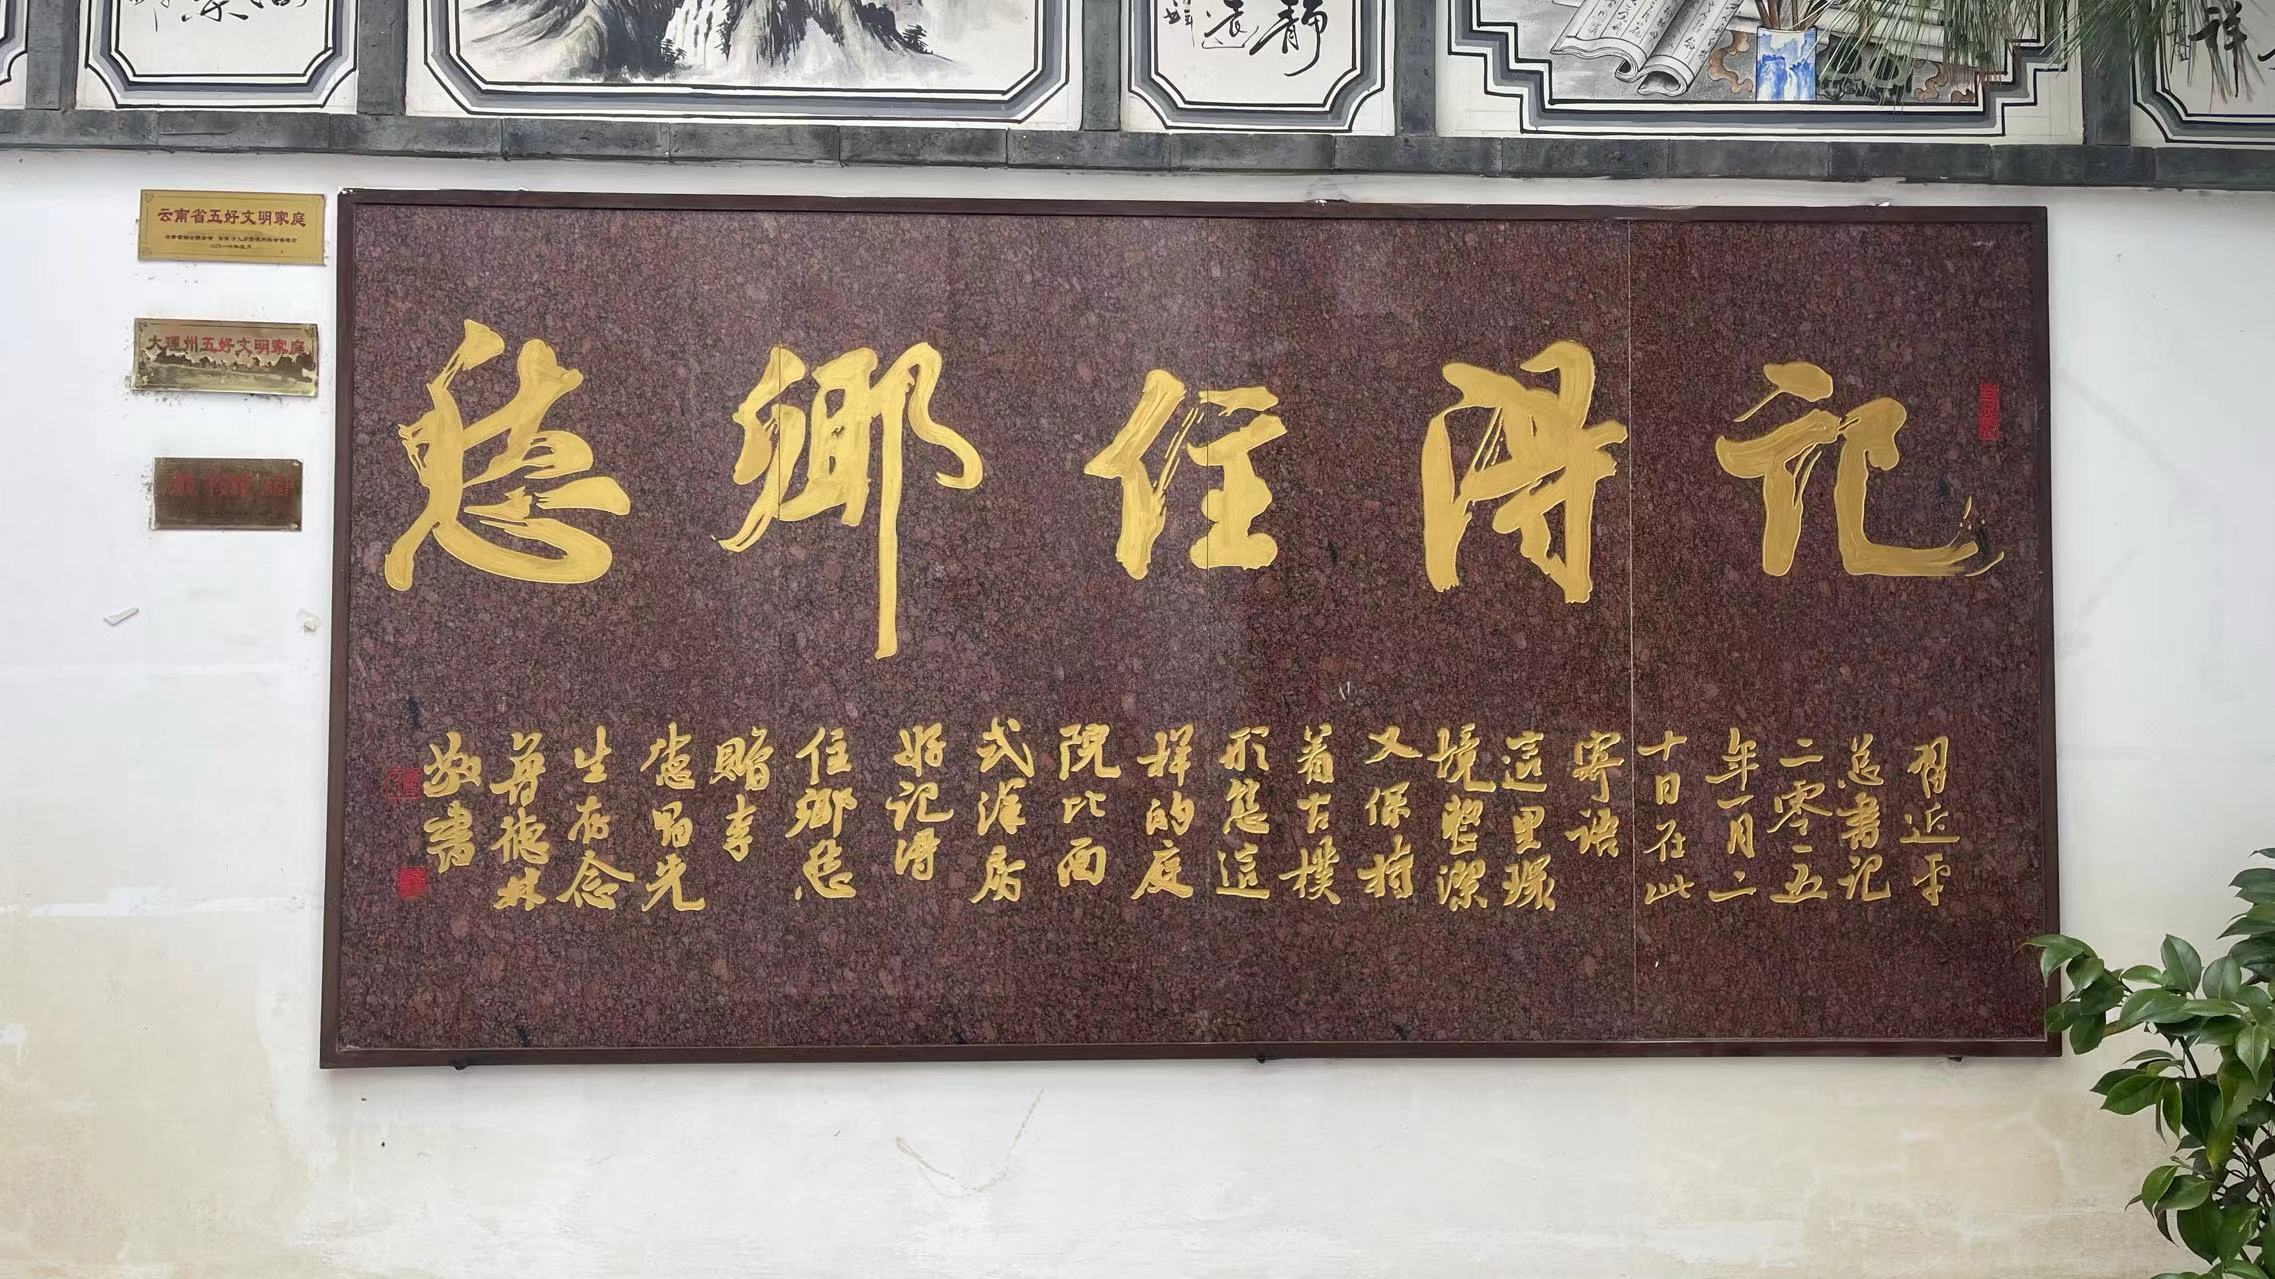 记得住鄉愁
習近平
总書记
二零一五
年一月二
十日在此
寄语
這里環
境整潔
又保持
着古樸
形態這
样的庭
院比西
式洋房
好记得
住鄉愁
贈李
悳昌先
生存念
德林
敬書
云南省五好文明家庭
大理州五好文明家庭
靜
遠
祥